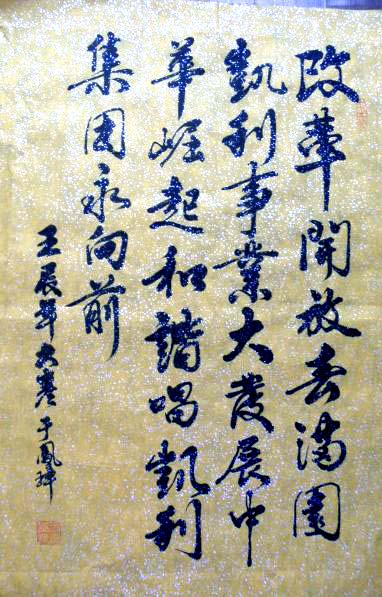 改革開放春滿園
凱利事業大發展中
華崛起和諧唱凱利
集团永向前
壬辰年大寒于鳳